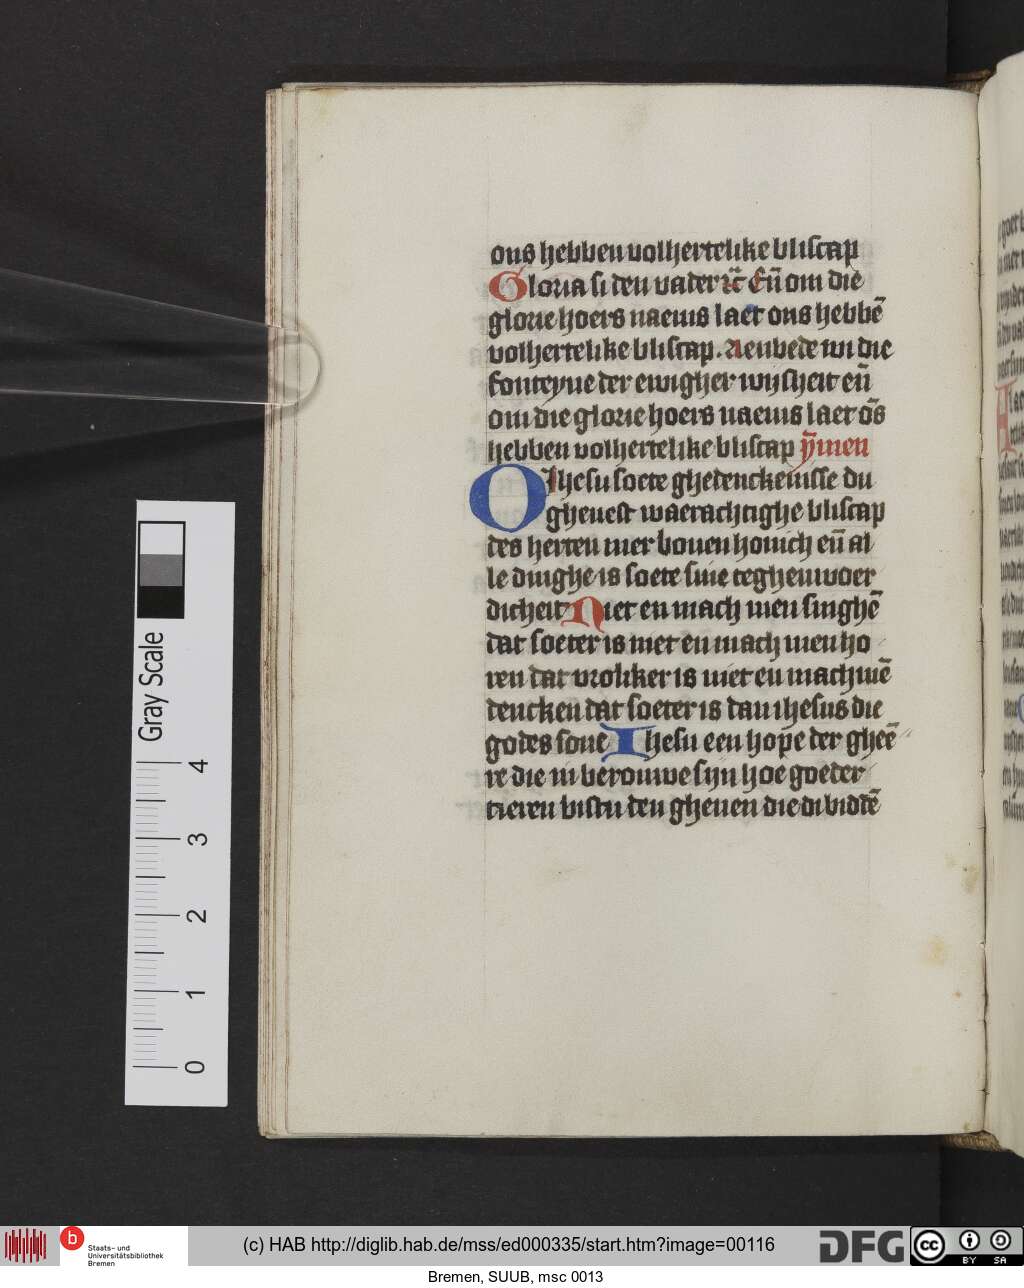 ons hebben volhertelike bliscap
Gloria si den vader rc̄ Eñ om die
glorie hoers naems laet ons hebbē
volhertelike bliscap. Aenbede wi die
fonteyne der ewigher wijsheit eñ
om die glorie hoers naems laet ōs
hebben volhertelike bliscap ȳmen
O Ihesu soete ghedenckenisse du
gheuest waerachtighe bliscap
des herten mer bouen honich eñ al
le dinghe is soete sine teghenwoer
dicheit Niet en mach men singhē
dat soeter is niet en mach men ho
ren dat vroliker is niet en mach mē
dencken dat soeter is dan ihesus die
godes sone Ihesu een hope der gheē
re die in berouwe sijn hoe goeder
tieren bistu den gheuen die di biddē
Gray Scale
4
3
2
1
0
b
Staats- und
Universitätsbibliothek
Bremen
(c) HAB http://diglib.hab.de/mss/ed000335/start.htm?image=00116
DFG
cc
BY SA
Bremen, SUUB, msc 0013